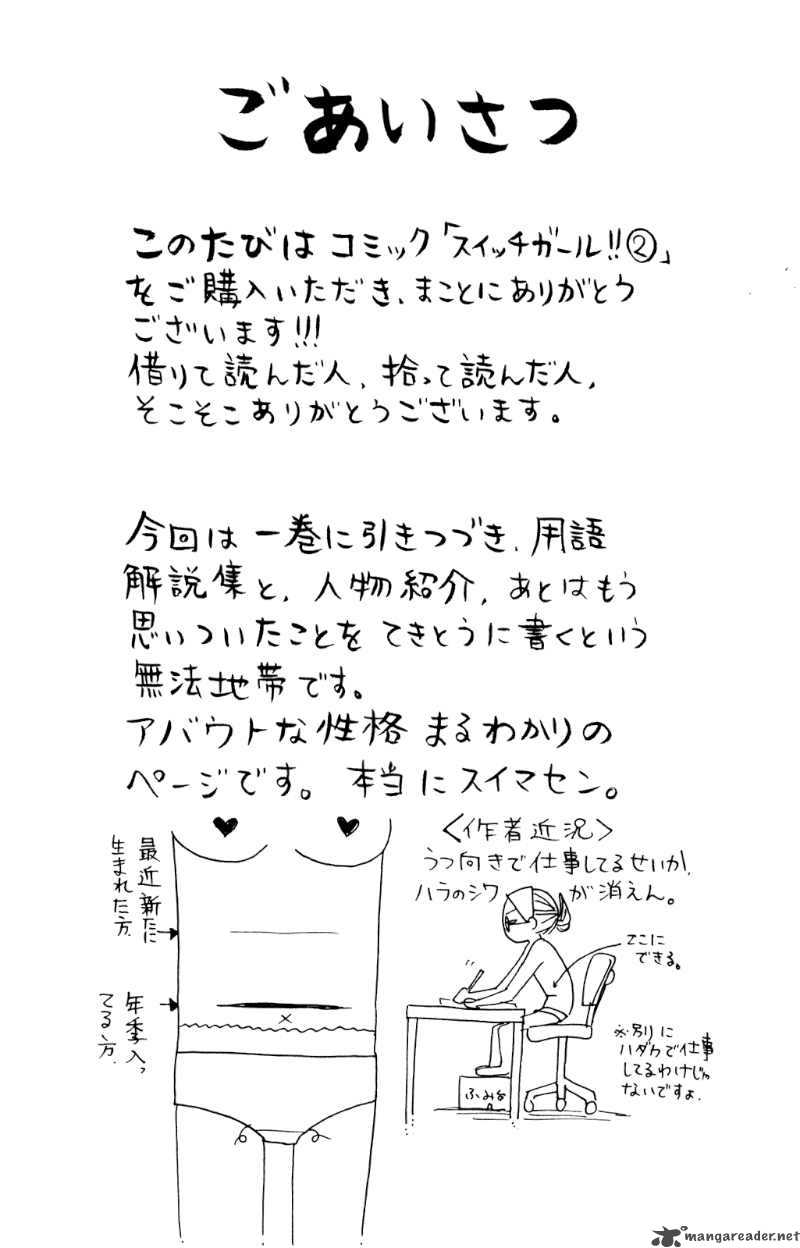 ごあいさつ
このたびは コミック「スイッチガール!!②」
をご購入いただき、まことにありがとう
ございます!!!
借りて読んだ人、拾って読んだ人、
そこそこありがとうございます。
今回は 一巻に引きつづき、用語
解説集と、人物紹介、あとはもう
思いついたことを てきとうに書くという
無法地帯です。
アバウトな性格 まるわかりの
ページです。 本当にスイマセン。
最近新たに
生まれた方
年季入っ
てる方
〈作者近況〉
うつ向きで仕事してるせいか、
ハラのシワ が消えん。
てこに
できる。
※別りに
ハダカで仕事
してるわけじゃ
ないですょ.
mangareader.net